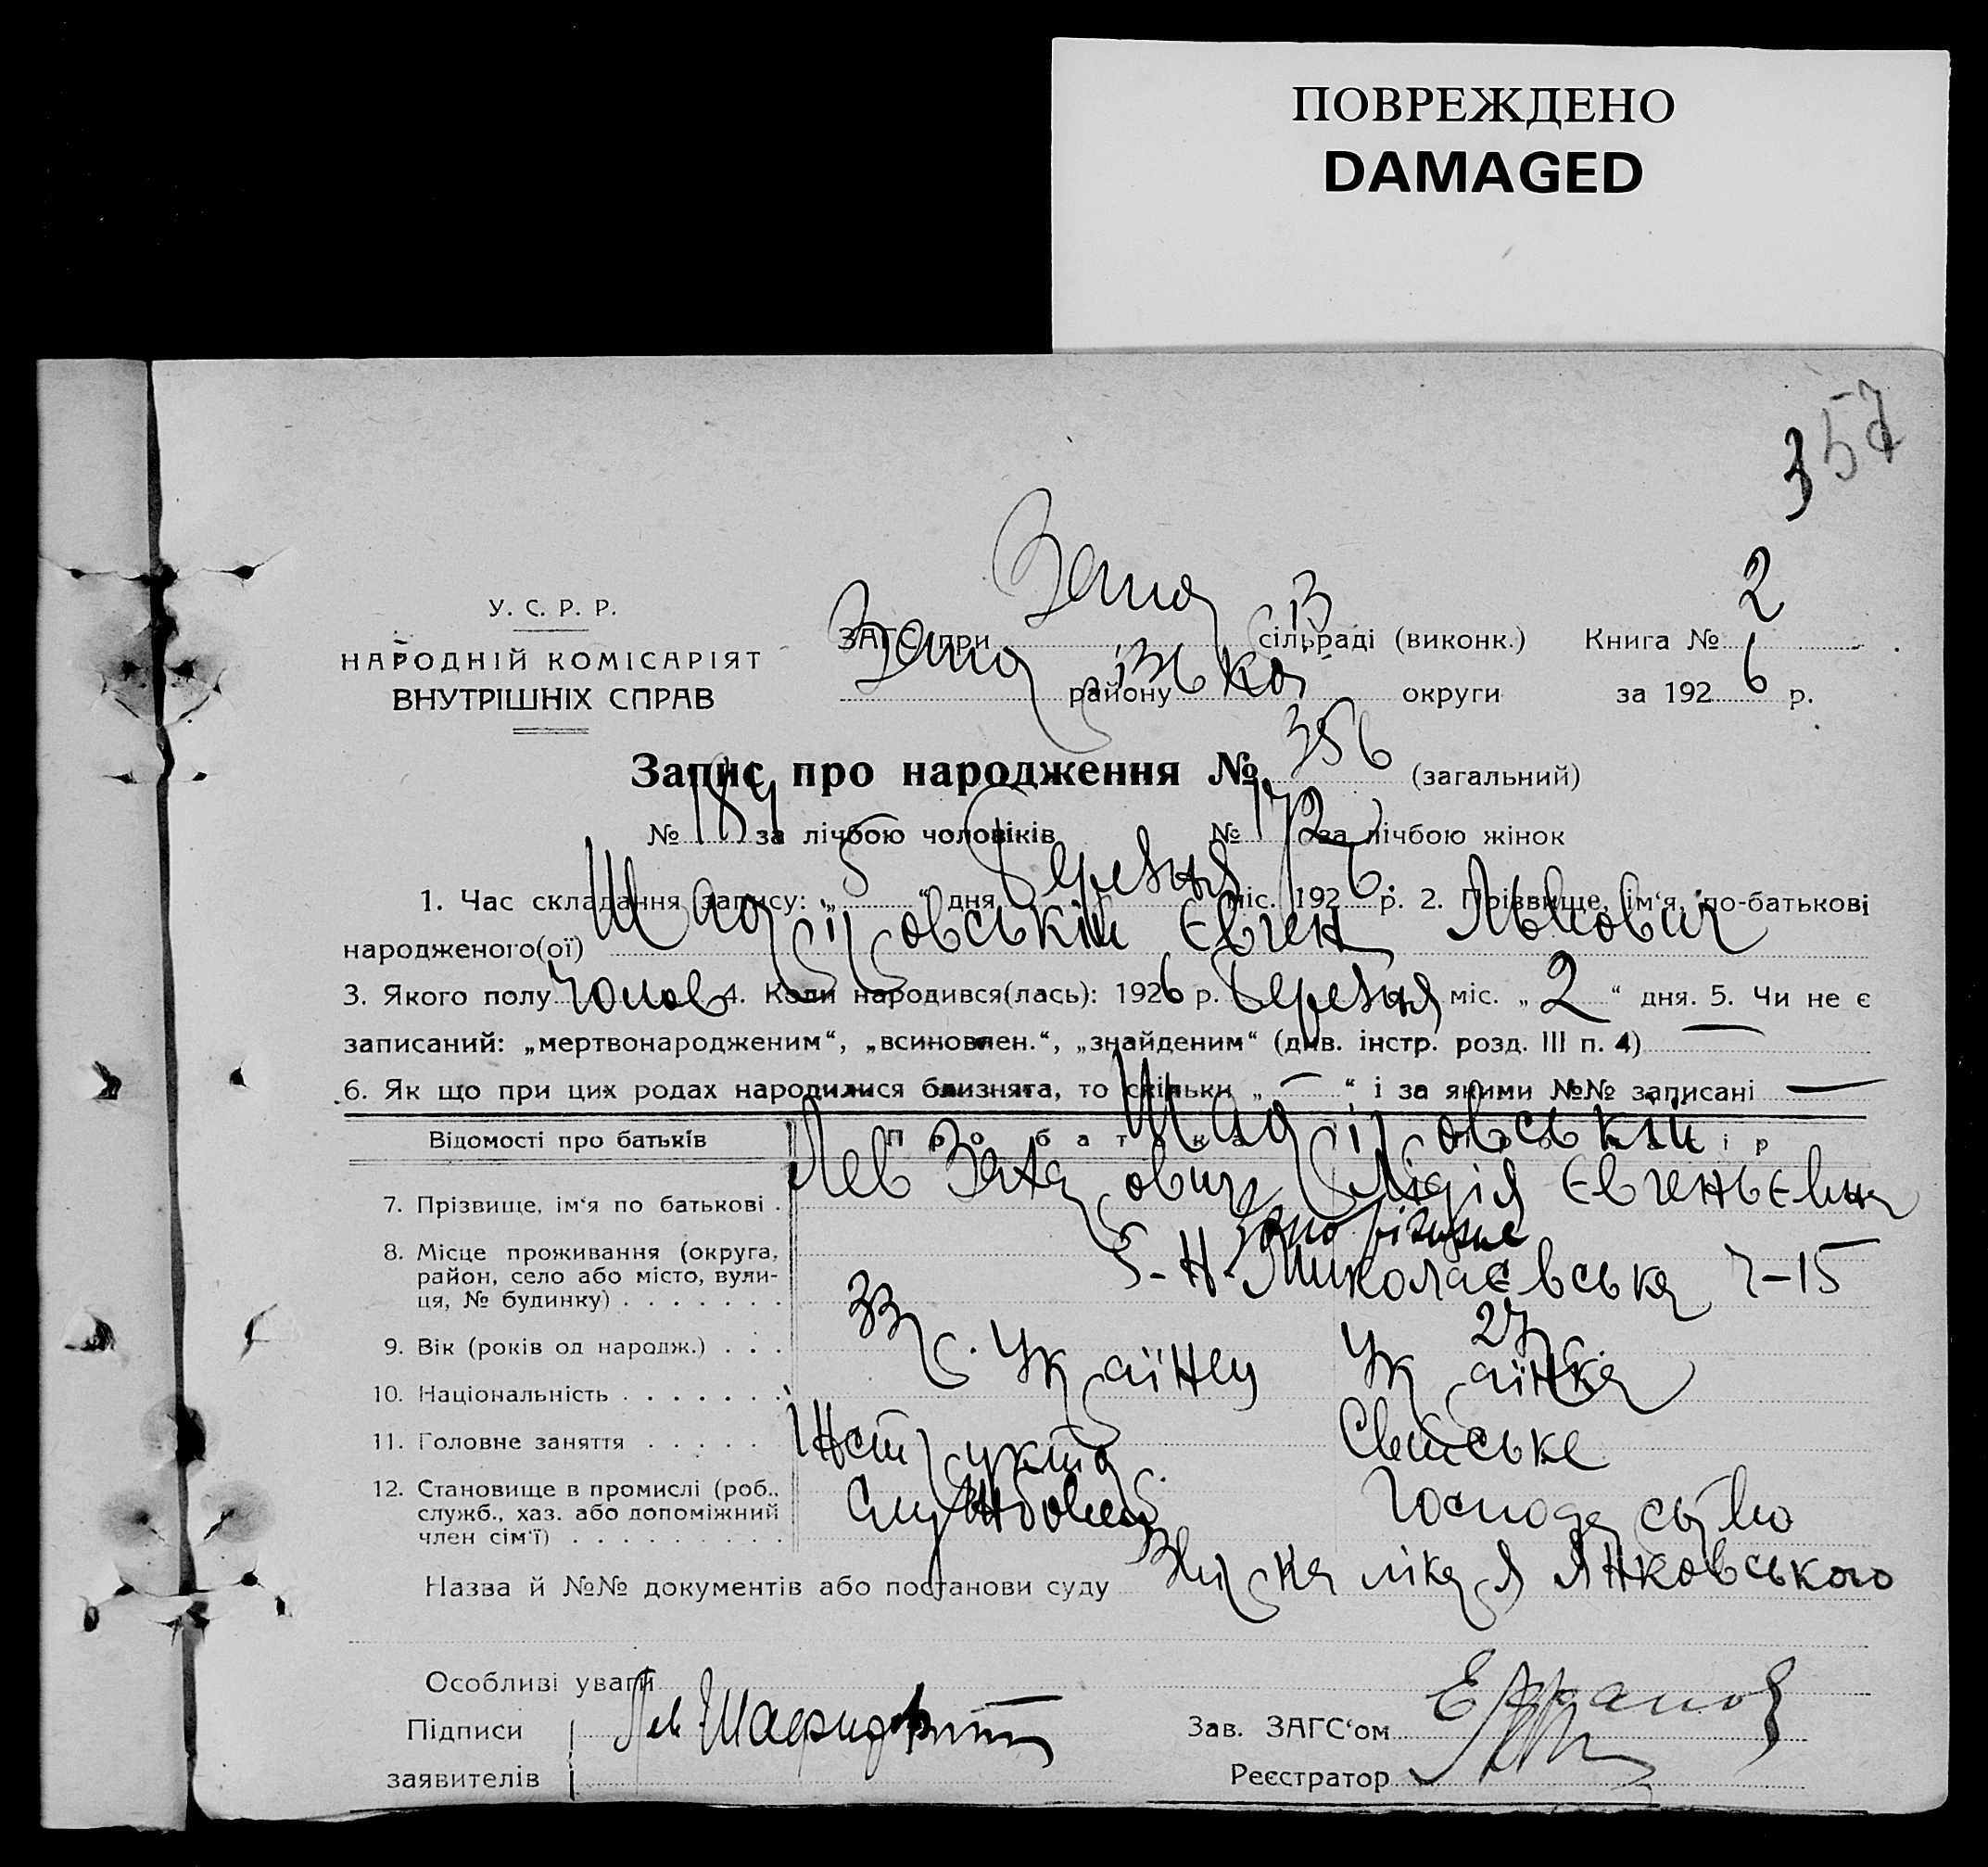 ПОВРЕЖДЕНО
DAMAGED
357
У. С. Р. Р.
НАРОДНІЙ КОМІСАРІЯТ
ВНУТРІШНІХ СПРАВ
ЗАГС при сільраді (виконк.) Книга № 2
району округи за 1926 р.
Запис про народження № 356 (загальний)
№ 184 за лічбою чоловіків № 172 за лічбою жінок
1. Час складання запису: „ 5 “ дня Березня міс. 1926 р. 2. Прізвище, ім‘я, по-батькові
народженого(ої) Євген Львович
3. Якого полу чолов 4. Коли народився(лась): 1926 р. Березня міс. „ 2 “ дня. 5. Чи не є
записаний: „мертвонародженим“, „всиновлен.“, „знайденим“ (див. інстр. розд. III п. 4) —
6. Як що при цих родах народилися близнята, то скільки „ — “ і за якими №№ записані —
Відомості про батьків Про батька матір
7. Прізвище, ім‘я по батькові . Лев Захарович Лідія Євгеньєвна
8. Місце проживання (округа, Запоріжжє
район, село або місто, вули- Б-Н-Миколаєвська 7-15
ця, № будинку) . . . . . . .
9. Вік (років од народж.) . . . 33 р. 27 р.
10. Національність . . . . . . . Українец Українка
11. Головне заняття . . . . . Інструктор Свійське
12. Становище в промислі (роб., Службовец Господарство
служб., хаз. або допоміжний
член сім‘ї) . . . . . . . . .
Назва й №№ документів або постанови суду лікаря Янковського
Особливі уваги
Підписи Лев
Зав. ЗАГС‘ом
заявителів
Реєстратор